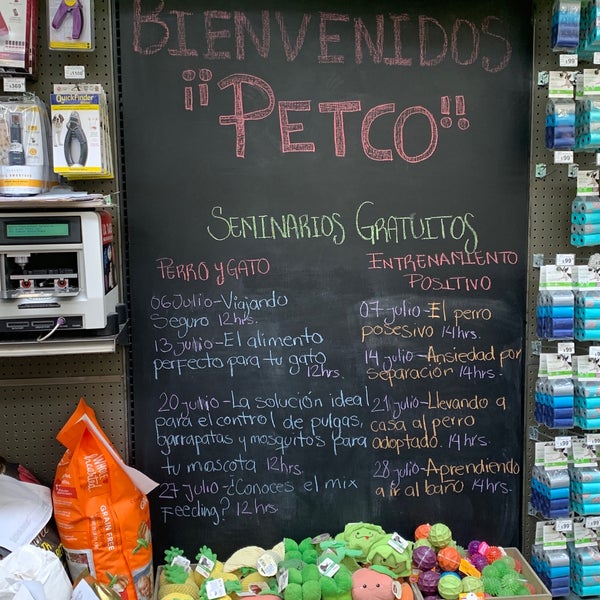 BIENVENIDOS
¡¡PETCO!!
SEMINARIOS GRATUITOS
PERRO Y GATO
06 Julio-Viajando
Seguro 12hrs.
13 julio-El alimento
perfecto para tu gato
12hrs.
20 julio-La solución ideal
para el control de pulgas,
garrapatas y mosquitos para
tu mascota 12hrs.
27 julio-¿Conoces el mix
Feeding? 12 hrs.
ENTRENAMIENTO
POSITIVO
07 julio-El perro
posesivo 14hrs.
14 julio-Ansiedad por
separación 14hrs.
21 julio-Llevando a
casa al perro
adoptado. 14hrs.
28 julio-Aprendiendo
a ir al baño 14hrs.
QuickFinder
GRAIN FREE